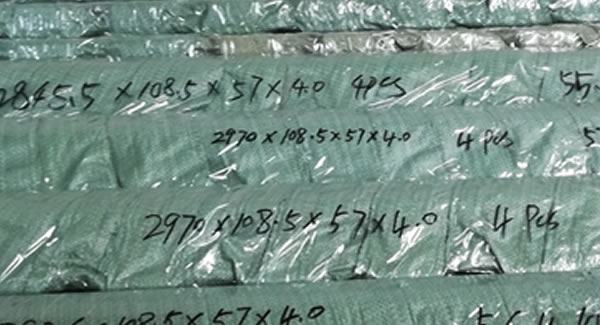 2845.5 x 108.5 x 57 x 4.0 4pcs 55
2970 x 108.5 x 57 x 4.0 4 pcs 5
2970 x 108.5 x 57 x 4.0 4 Pcs
108.5 x 57 x 4.0